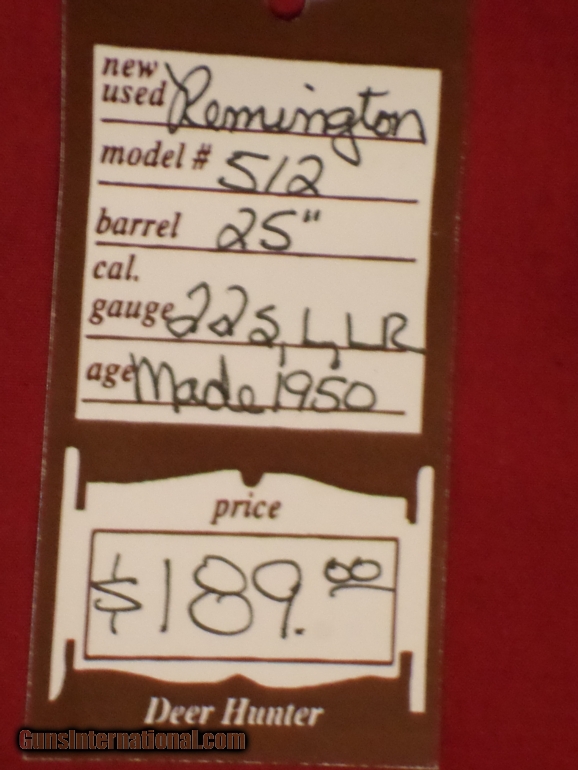 new
used Remington
model # 512
barrel 25"
cal.
gauge 22 S, L, LR
age Made 1950
price
$189.00
Deer Hunter
GunsInternational.com